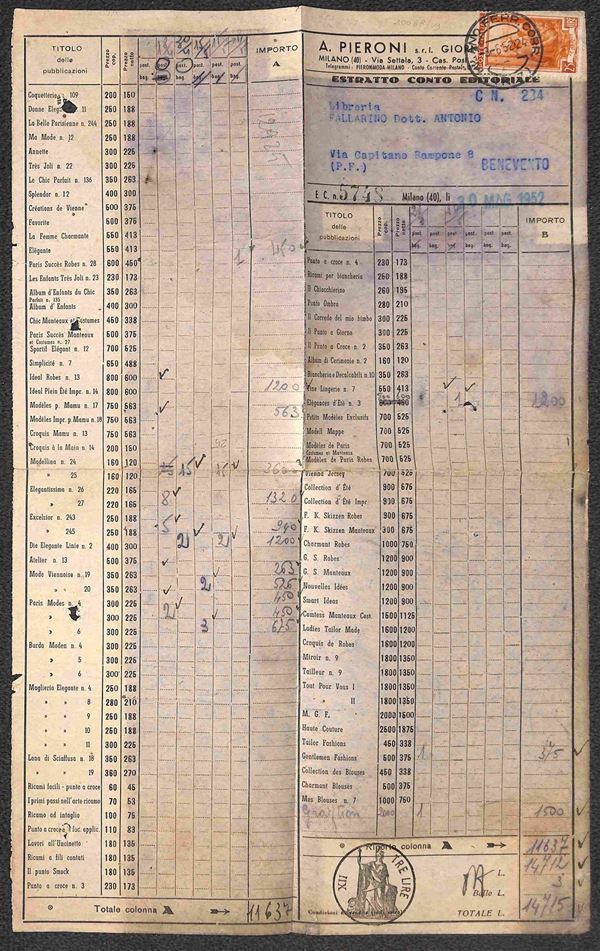 TITOLO
delle
pubblicazioni
Prezzo cop.
Prezzo netto
IMPORTO
A
Coquetterie 109 200 150
Donne Eleg. 11 250 188
La Belle Parisienne n. 244 250 188
Ma Mode n. 12 250 188
Annette 300 225
Très Joli n. 22 300 225
Le Chic Parfait n. 136 350 263
Splendor n. 12 400 300
Créations de Vienne 500 375
Favorite 500 375
La Femme Charmante 550 413
Elégante 550 413
Paris Succès Robes n. 28 600 450
Les Enfants Très Joli n. 23 230 173
Album d'Enfants du Chic
Parfait n. 135 350 263
Album d' Enfants 400 300
Chic Manteaux et Costumes 450 338
Paris Succès Manteaux
et Costumes n. 27 500 375
Sportif Elégant n. 12 700 525
Simplicité n. 7 650 488
Ideal Robes n. 13 800 600
Ideal Plein Été Impr. n. 14 800 600 1200
Modèles p. Mamu n. 17 750 563 563
Modèles Impr. p. Mamu n. 18 750 563
Croquis Mamu n. 13 750 563
Croquis à la Main n. 14 200 150
Modellina n. 24 160 120
» 25 160 120
Elegantissima n. 26 220 165
» 27 220 165 1320
Excelsior n. 243 250 188
» 245 250 188 940
Die Elegante Linie n. 2 400 300 1200
Atelier n. 13 500 375
Mode Viennoise n. 19 350 263 263
» » 20 350 263 2 526
Paris Modes n. 4 300 225 450
300 225 2 450
» 6 300 225 3 675
Burda Moden n. 4 300 225
» 5 300 225
» 6 300 225
Maglieria Elegante n. 4 250 188
» » 8 280 210
» » 9 250 188
» » 10 250 188
» » 11 300 225
Lana di Sciaffusa n. 18 350 263
» » 19 360 270
Ricami facili - punto a croce 60 45
I primi passi nell'arte ricamo 70 53
Ricamo ad intaglio 100 75
Punto a croce e foc. applic. 110 83
Lavori all'Uncinetto 180 135
Ricami a fili contati 180 135
Il punto Smock 180 135
Punto a croce n. 3 230 173
Totale colonna A 11637
A. PIERONI s.r.l.
MILANO (40) - Via Settala, 3 - Cas. Pos
Telegrammi: PIERONMODA-MILANO - Conto Corrente Postale
ESTRATTO CONTO EDITORIALE
C N. 234
Libreria
FALLARINO Dott. ANTONIO
Via Capitano Rampone 8
(P.F.) BENEVENTO
E C. n. 5748 Milano (40), li 30 MAG 1952
TITOLO
delle
pubblicazioni
Prezzo cop.
Prezzo netto
IMPORTO
B
Punto a croce n. 4 230 173
Ricami per biancheria 250 188
Il Chiacchierino 260 195
Punto Ombra 280 210
Il Corredo del mio bimbo 300 225
Il Punto a Giorno 300 225
Il Punto a Croce n. 2 350 263
Album di Cerimonie n. 2 160 120
Biancheria e Decalcabili n. 10 350 263
Fine Lingerie n. 7 550 413
Elégances d'Été n. 3 1200
Petits Modèles Exclusifs 700 525
Modell Mappe 700 525
Modèles de Paris
Costumes et Manteaux 700 525
Modèles de Paris Robes 700 525
Vienna Jersey 700 525
Collection d' Été 900 675
Collection d' Été Impr. 900 675
F. K. Skizzen Robes 900 675
F. K. Skizzen Manteaux 900 675
Charmant Robes 1000 750
G. S. Robes 1200 900
G. S. Manteaux 1200 900
Nouvelles Idées 1200 900
Smart Ideas 1200 900
Comtess Manteaux Cost. 1500 1125
Ladies Tailor Made 1600 1200
Croquis de Robes 1600 1200
Miroir n. 9 1800 1350
Tailleur n. 9 1800 1350
Tout Pour Vous I 1800 1350
» II 1800 1350
M. G. F. 2000 1500
Haute Couture 2500 1875
Tailor Fashions 450 338
Gentlemen Fashions 500 375 1 375
Collection des Blouses 450 338
Charmant Blouses 500 375
Mes Blouses n. 7 1000 750
2000 1 1500
Riporto colonna A 11637
L. 14712
Bollo L. 3
TOTALE L. 14715
TRE LIRE
XII